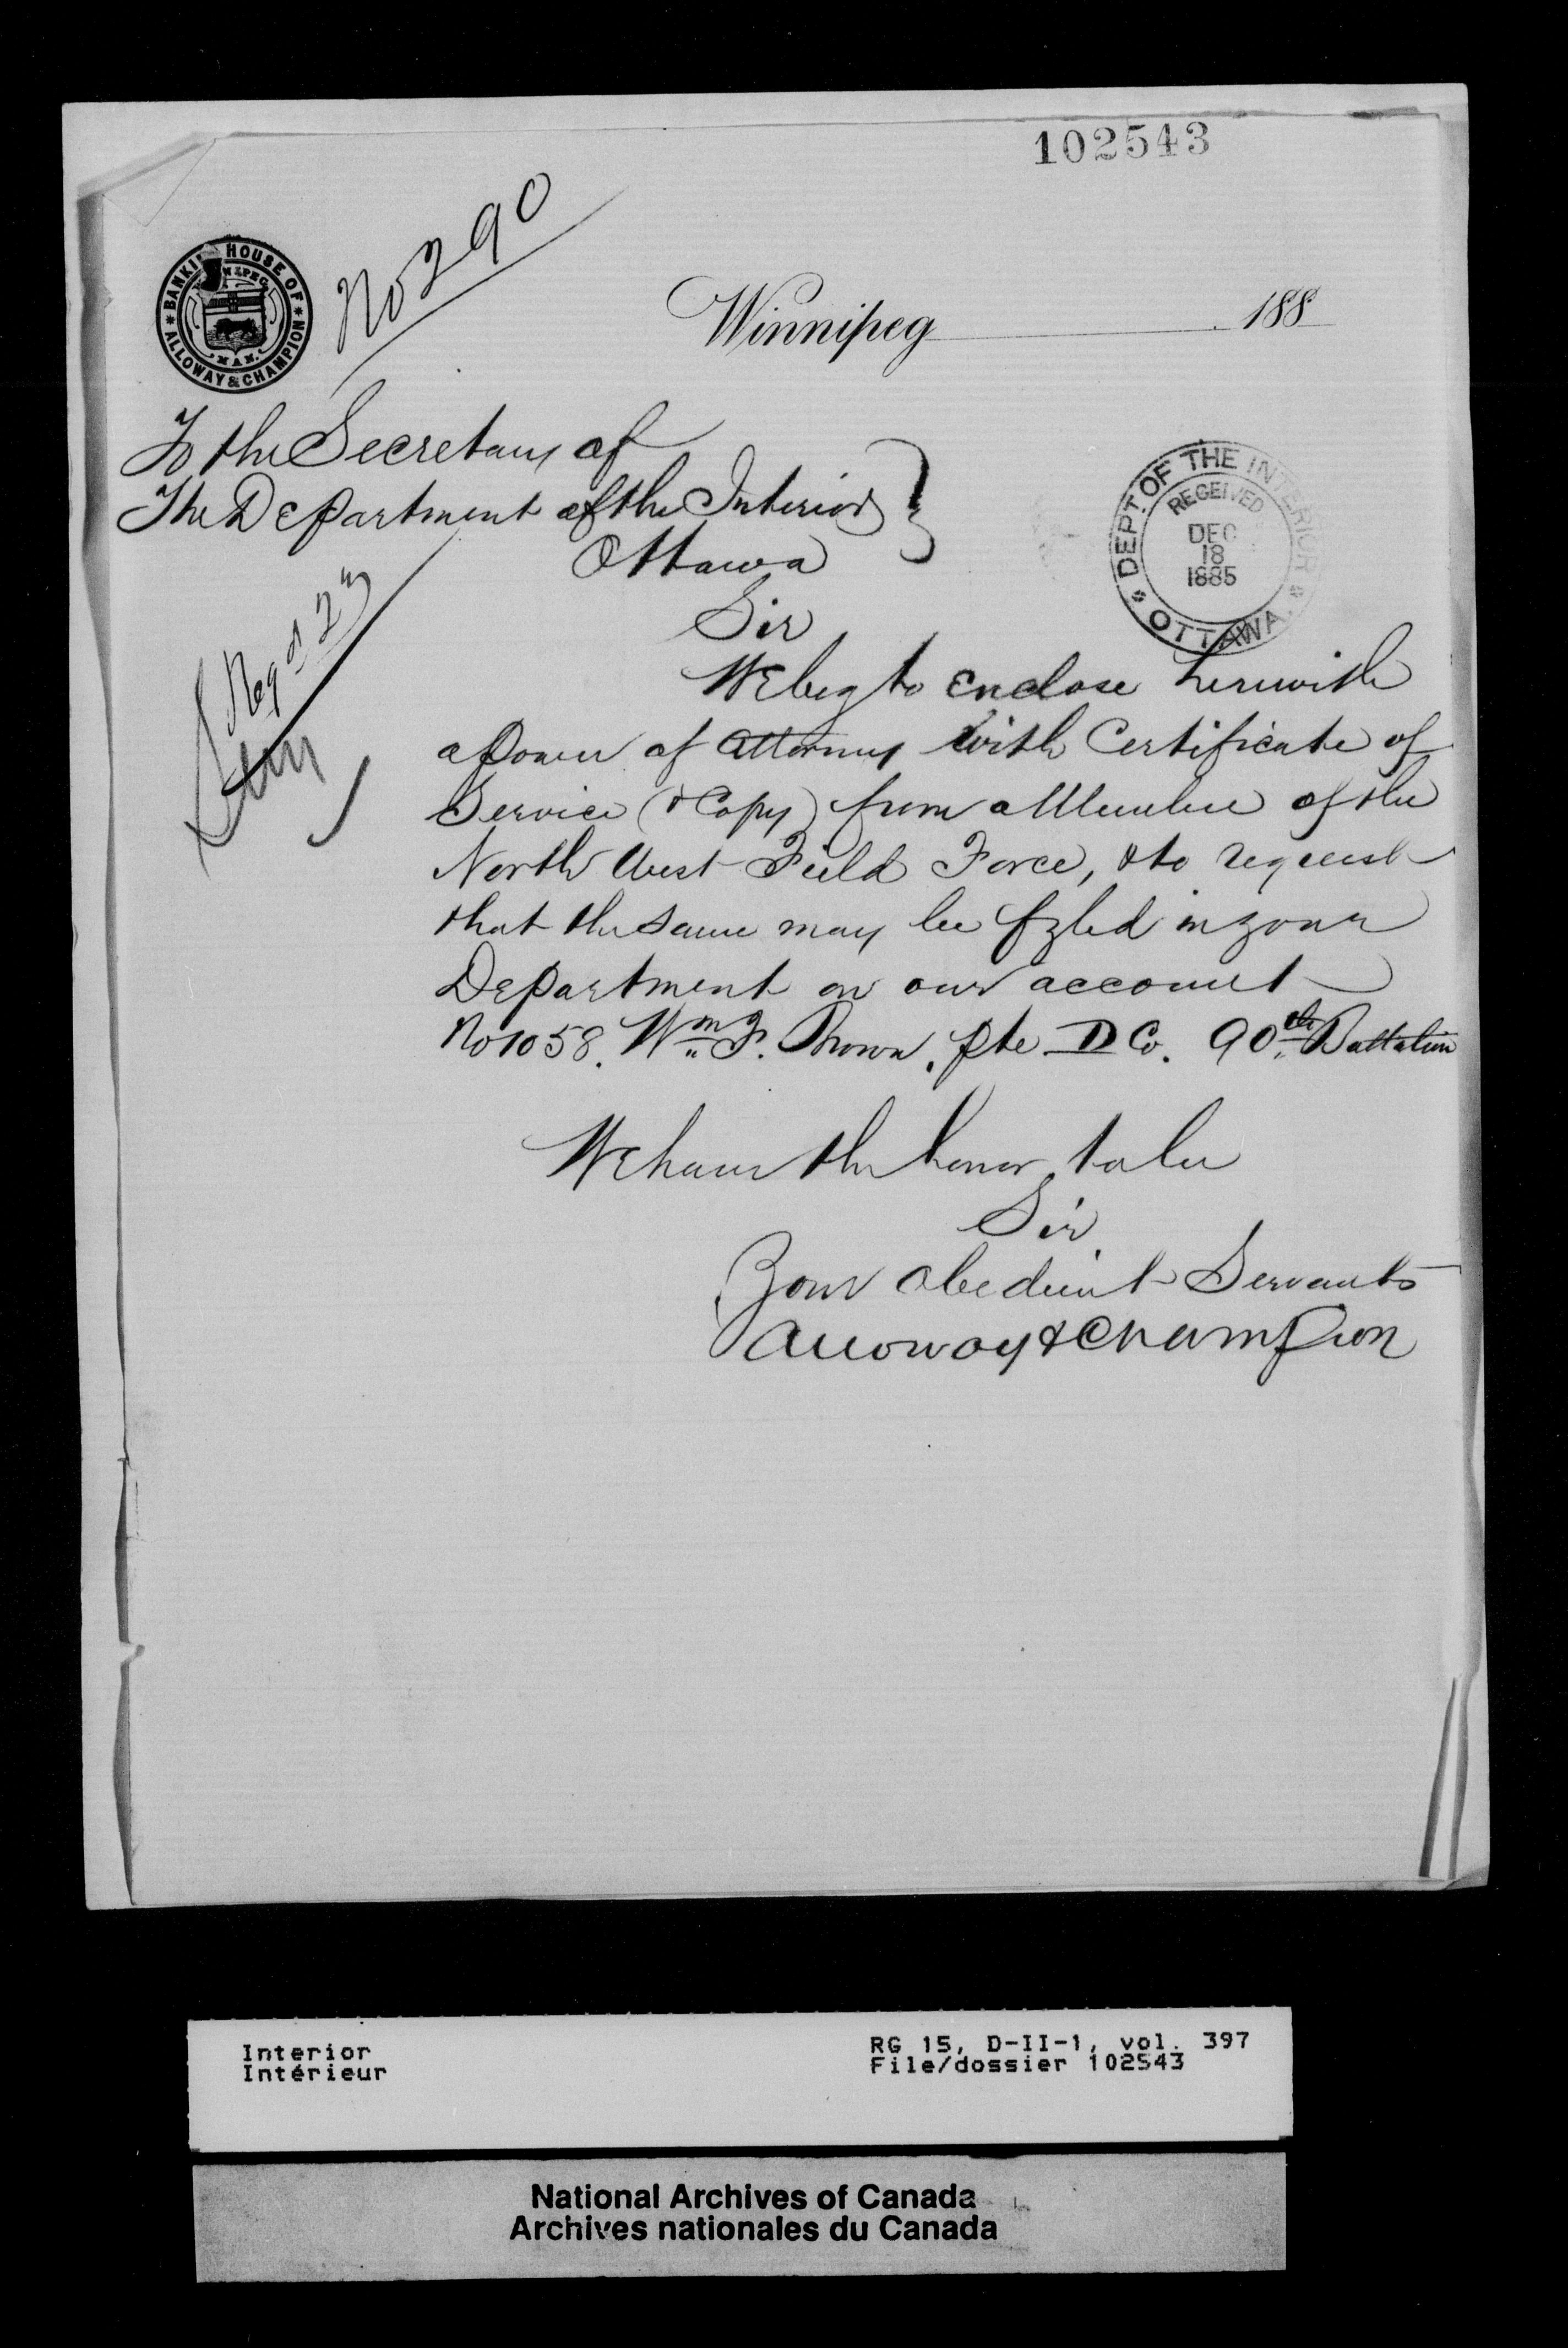 102543
No 290
BANKING HOUSE OF
ALLOWAY & CHAMPION
WINNIPEG
MAN.
Winnipeg 188
To the Secretary of
The Department of the Interior
Ottawa
DEPT. OF THE INTERIOR
RECEIVED
DEC
18
1885
OTTAWA
Sir
We beg to enclose herewith
a Power of Attorney with Certificate of
Service (& Copy) from a Member of the
North West Field Force, & to request
that the same may be fyled in your
Department on our account
No 1058. Wm F. Brown, Pte D Co. 90th Battalion
We have the honor to be
Sir
Your obedient Servants
Alloway & Champion
Interior
Intérieur
RG 15, D-II-1, vol. 397
File/dossier 102543
National Archives of Canada
Archives nationales du Canada